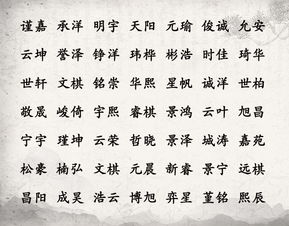 谨嘉 承洋 明宇 天阳 元瑜 俊诚 允安
云坤 誉泽 铮洋 玮桦 彬浩 时佳 琦华
世轩 文棋 铭崇 华熙 星帆 诚洋 世柏
敬晟 峻倚 宇熙 睿棋 景鸿 云叶 旭昌
宁宇 瑾坤 云荣 哲晓 景泽 城涛 嘉苑
松豪 楠弘 文棋 元晨 新睿 景宁 远棋
昌阳 成昊 浩云 博旭 弈星 董铭 熙辰